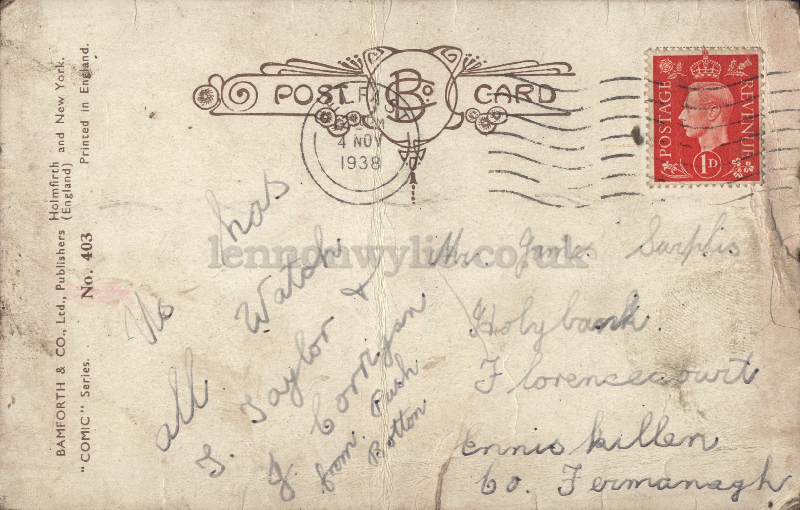 BAMFORTH & CO., Ltd., Publishers Holmfirth and New York.
(England)
"COMIC" Series. No. 403 Printed in England.
POST CARD
B Co
4 NOV
1938
POSTAGE
REVENUE
1D
lennonwylie.co.uk
has
Watch
all
T. Taylor &
J. Corrigan
from Push
Botton
Mr.
Holybank
Florencecourt
Enniskillen
Co. Fermanagh